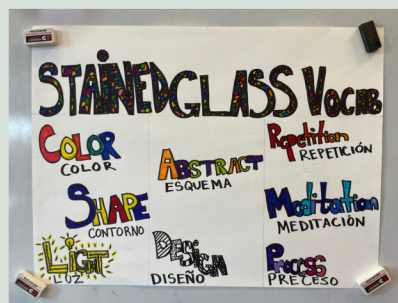 STAINED GLASS VOCAB
COLOR
COLOR
SHAPE
CONTORNO
LIGHT
LUZ
ABSTRACT
ESQUEMA
DESIGN
DISEÑO
Repetition
REPETICIÓN
Meditation
MEDITACIÓN
PROCESS
PRECESO